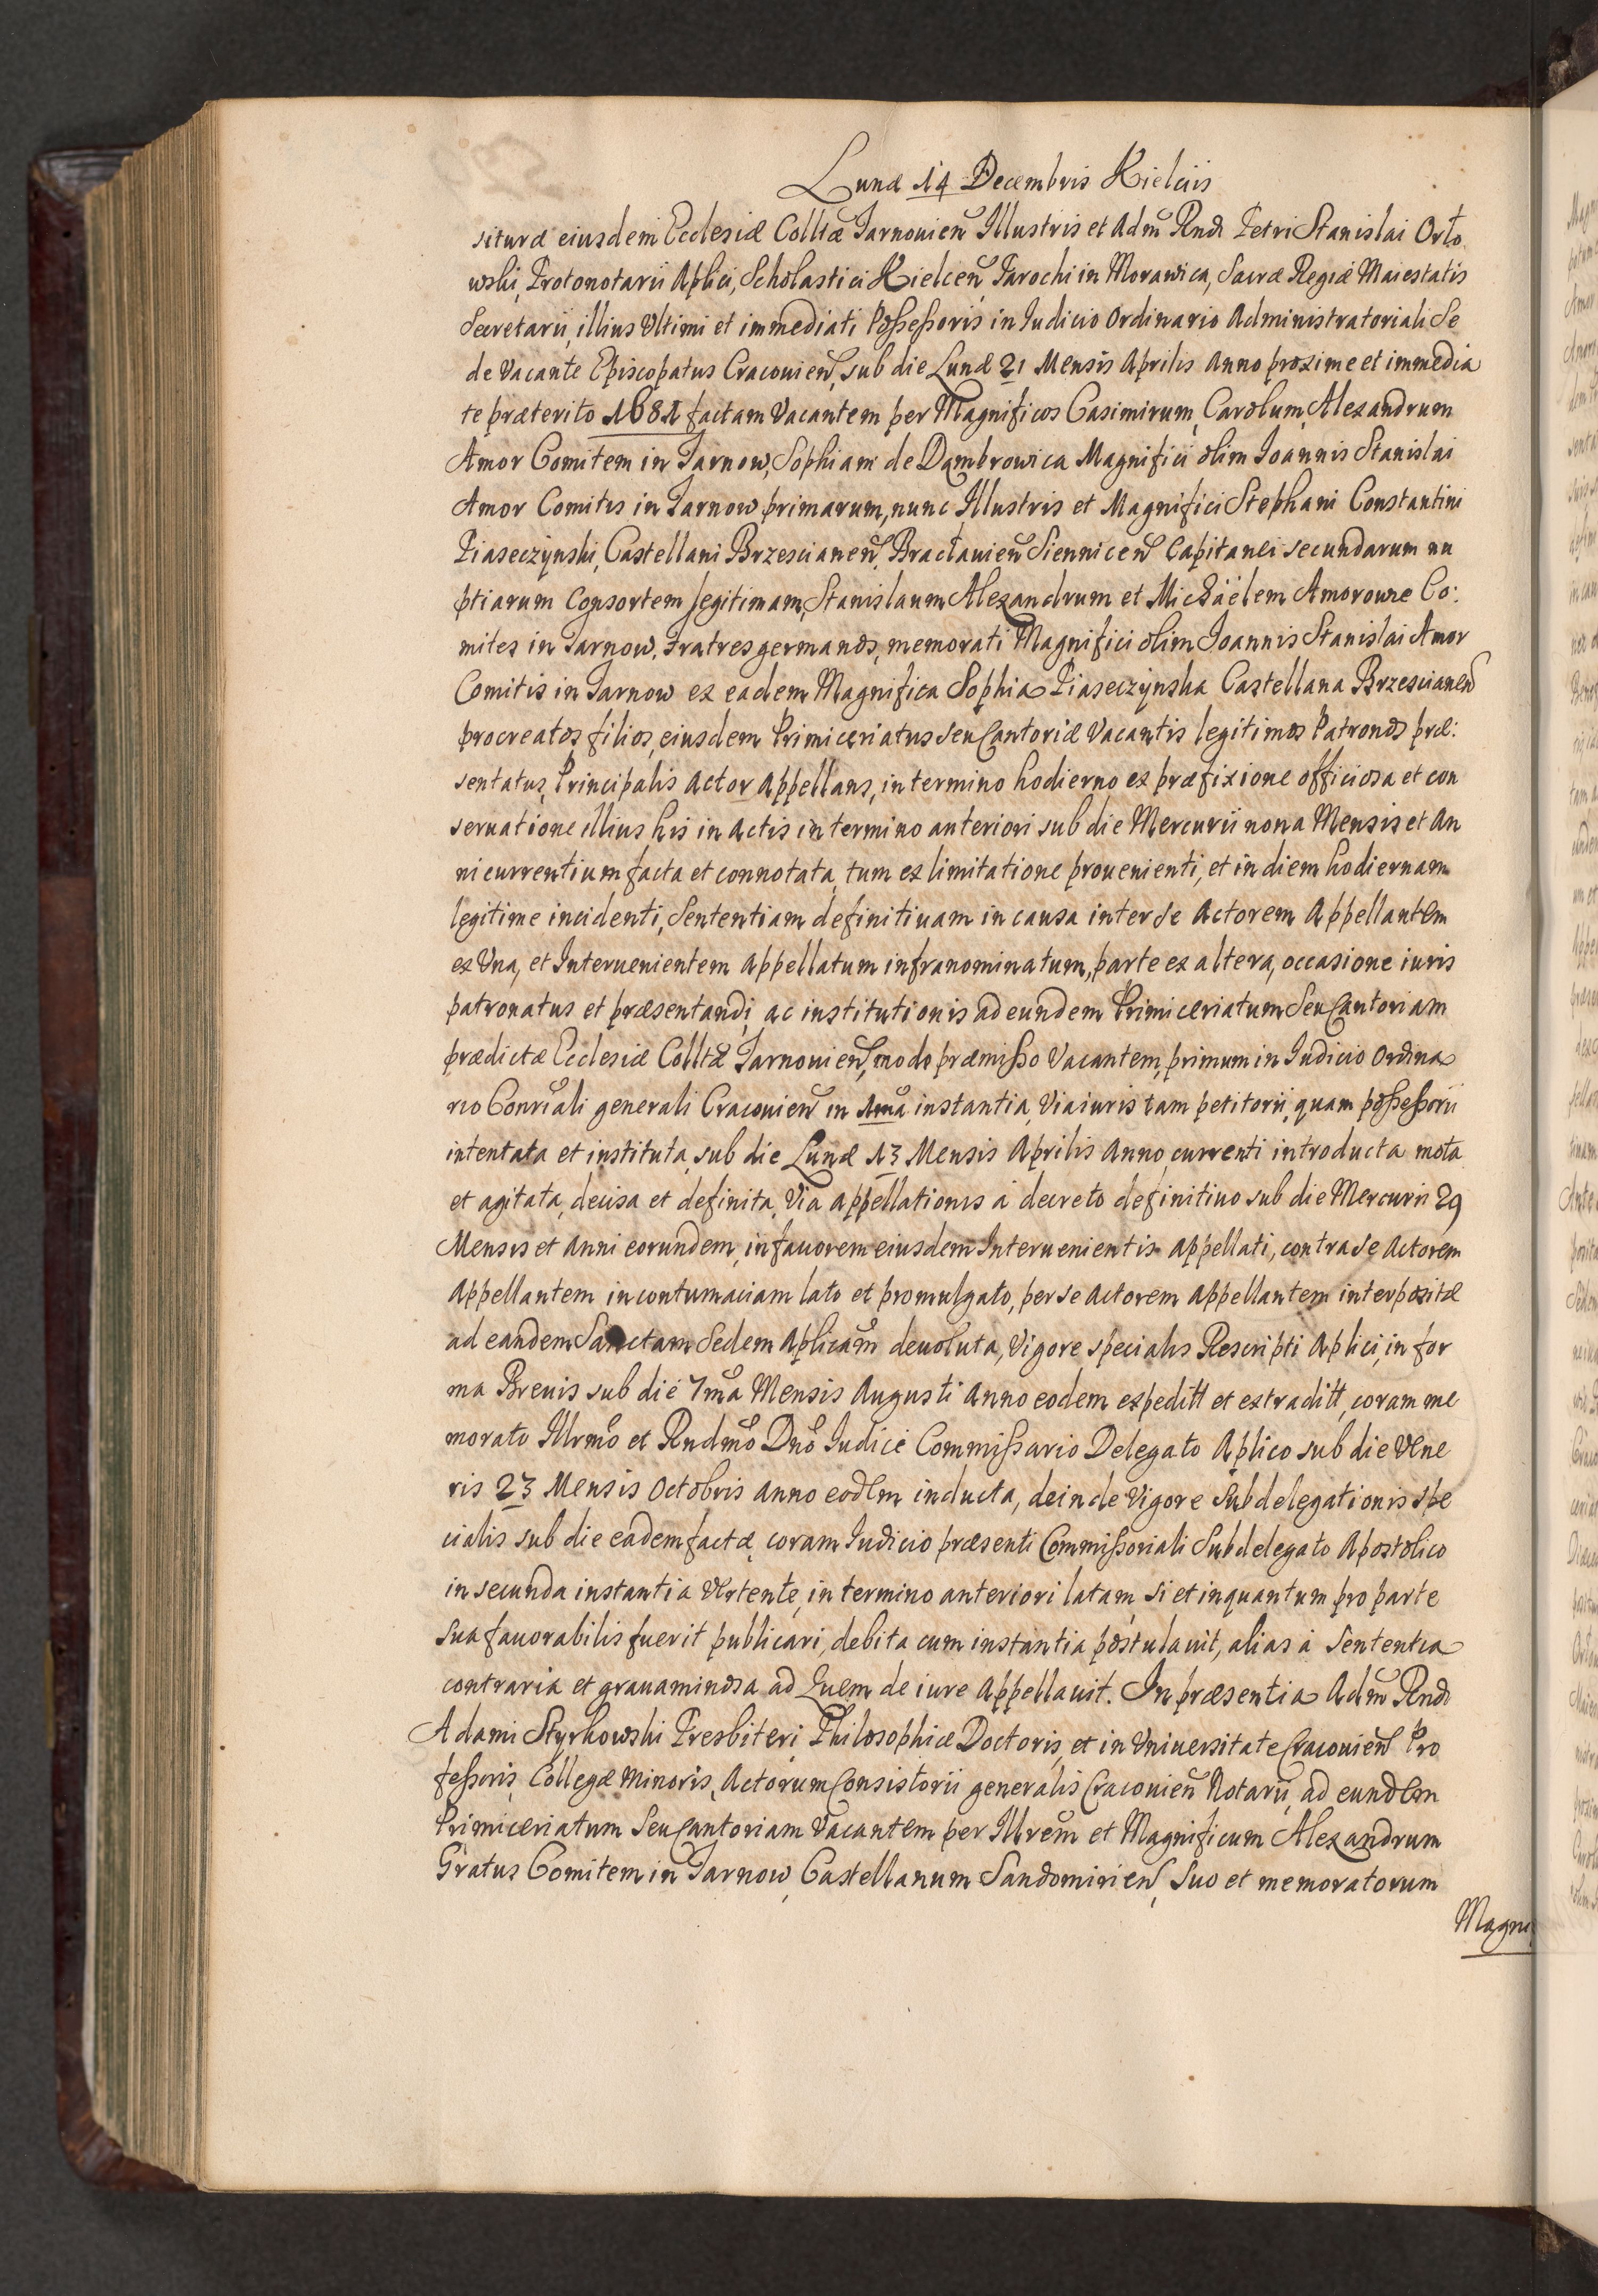 Lunæ 14 Decembris Kielciis
situræ eiusdem Ecclesiæ Colltæ Tarnouien Illustris et Adm Rndi Petri Stanislai Orło
wski, Protonotarii Aplici, Scholastici Kielcen, Parochi in Morawica, Sacræ Regiæ Maiestatis
Secretarii, illius Vltimi et immediati Possessoris in Iudicio Ordinario Administratoriali Se
de Vacante Episcopatus Cracouien, sub die Lunæ 21 Mensis Aprilis Anno proxime et immedia
te præterito 1681 factam Vacantem per Magnificos Casimirum, Carolum, Alexandrum
Amor Comitem in Tarnow, Sophiam de Dąmbrowica Magnifici olim Ioannis Stanislai
Amor Comitis in Tarnow primarum, nunc Illustris et Magnifici Stephani Constantini
Piaseczynski, Castellani Brzescianen, Bracłauien Siennicen Capitanei secundarum nu
ptiarum Consortem legitimam, Stanislaum Alexandrum et Michaëlem Amorowe Co:
mites in Tarnow, Fratres germanos, memorati Magnifici olim Ioannis Stanislai Amor
Comitis in Tarnow ex eadem Magnifica Sophia Piaseczynska Castellana Brzescianen
procreatos filios, eiusdem Primiceriatus seu Cantoriæ Vacantis legitimos Patronos præ:
sentatus, Principalis Actor Appellans, in termino hodierno ex præfixione officiosa et con
seruatione illius his in Actis in termino anteriori sub die Mercurii nona Mensis et An
ni currentium facta et connotata, tum ex limitatione prouenienti, et in diem hodiernam
legitime incidenti, Sententiam definitiuam in causa inter se Actorem Appellantem
ex Vna, et Interuenientem Appellatum infranominatum, parte ex altera, occasione iuris
patronatus et præsentandi, ac institutionis ad eundem Primiceriatum Seu Cantoriam
prædictæ Ecclesiæ Colltæ Tarnouien, modo præmisso Vacantem, primum in Iudicio Ordina
rio Consriali generali Cracouien in 1ma instantia, Via iuris tam petitorii, quam possessorii
intentata et instituta, sub die Lunæ 13 Mensis Aprilis Anno currenti introducta mota
et agitata, decisa et definita, Via Appellationis à decreto definitiuo sub die Mercurii 29
Mensis et Anni eorundem, in fauorem eiusdem Interuenientis Appellati, contra se Actorem
Appellantem in contumaciam lato et promulgato, per se Actorem Appellantem interpositæ
ad eandem Sanctam Sedem Aplicam deuoluta, Vigore specialis Rescripti Aplici, in for
ma Breuis sub die 7ma Mensis Augusti Anno eodem expeditt et extraditt, coram me
morato Illrmo et Rndmo Dno Iudice Commissario Delegato Aplico sub die Vene
ris 23 Mensis Octobris Anno eodem inducta, deinde Vigore Subdelegationis spe
cialis sub die eadem factæ, coram Iudicio præsenti Commissoriali Subdelegato Apostolico
in secunda instantia Vertente, in termino anteriori latam, si et inquantum pro parte
sua fauorabilis fuerit publicari, debita cum instantia postulauit, alias à Sententia
contraria et grauaminosa ad Quem de iure Appellauit. In præsentia Adm Rndi
Adami Styrkowski Presbiteri, Philosophiæ Doctoris, et in Vniuersitate Cracouien Pro
fessoris, Collegæ Minoris, Actorum Consistorii generalis Cracouien Notarii, ad eundem
Primiceriatum Seu Cantoriam Vacantem per Illrem et Magnificum Alexandrum
Gratus Comitem in Tarnow, Castellanum Sandomirien, Suo et memoratorum
Magni